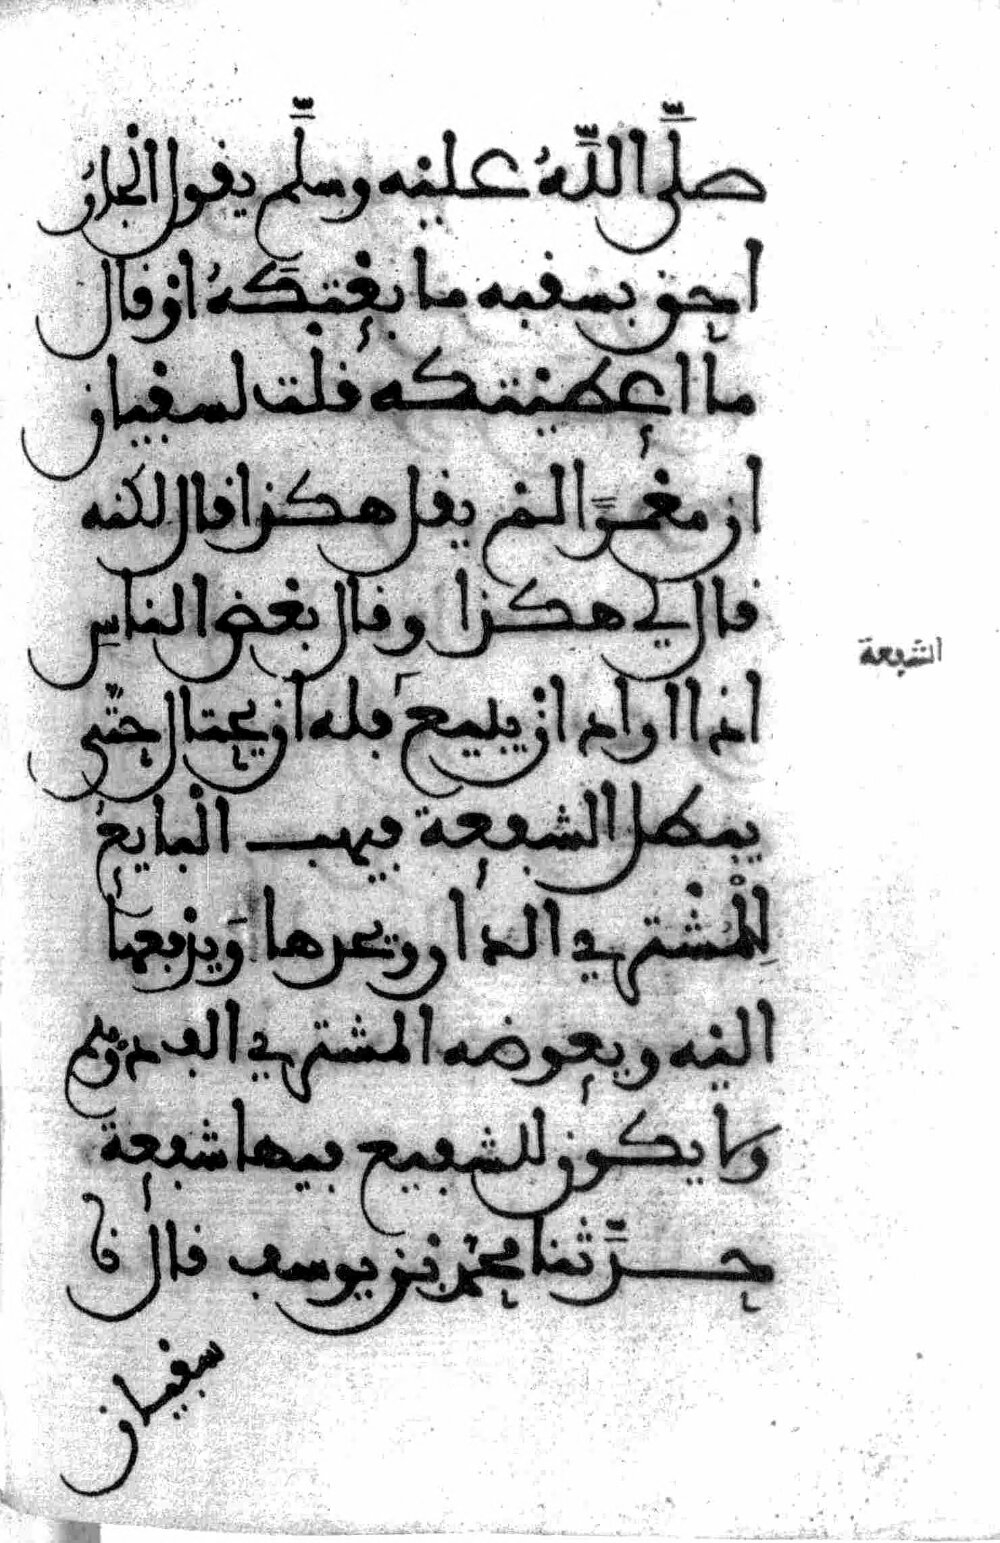 صلَّى اللَّهُ عليْه وسلَّم يقول الْجارُ
احق بسقبه ما بعْتكهُ اوْ قال
ما اعطيْتكه قلْت لسفيان
ان معْمرًا لمْ يقل هكذا قال لكنه
قال لي هكذا وقال بعْض الناس
اذا اراد ان يبيع فله ان يحتال حتّى
يبطل الشفعة فيهب الْبايعُ
لِلْمُشْتري الدار ويحدها وَيدْفعها
اليْه ويعوضه المشتري الف درْهم
ولا يكون للشفيع فيها شفعة
حدَّثنا محمد بْن يوسف قال نا
سفْيان
الشفعة